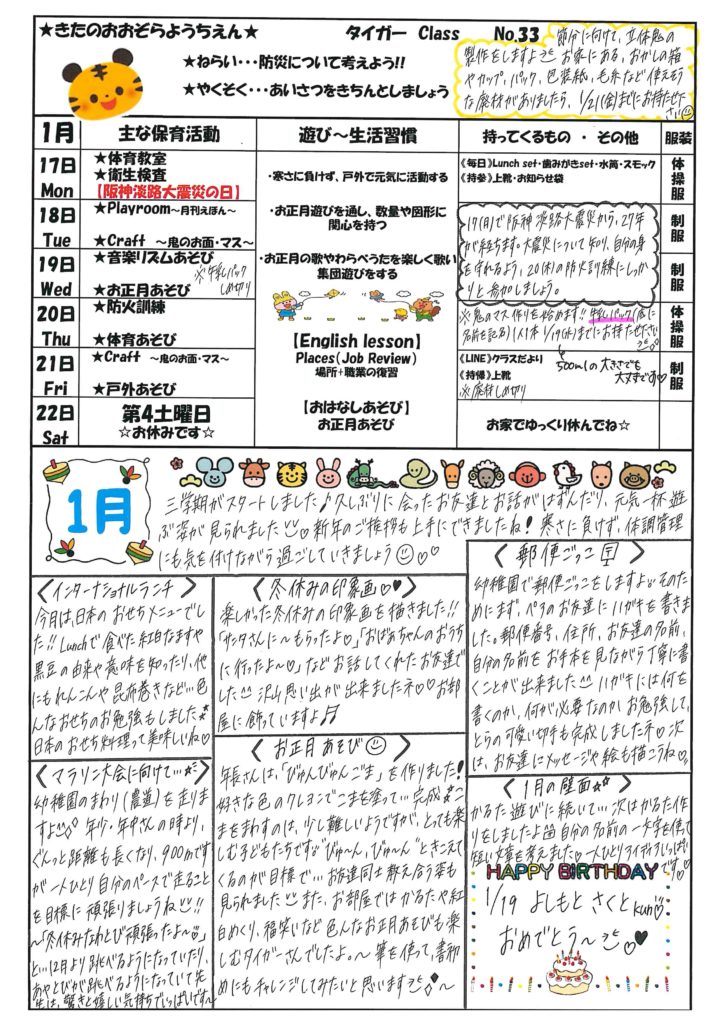 ★きたのおおぞらようちえん★
タイガー Class No.33
★ねらい・・・防災について考えよう!!
★やくそく・・・あいさつをきちんとしましょう
節分に向けて、立体鬼の
製作をしますよ お家にある、おかしの箱
やカップ、パック、包装紙、毛糸など使えそう
な廃材がありましたら、1/21(金)までにお持た下
さい
1月 主な保育活動 遊び～生活習慣 持ってくるもの ・ その他 服装
17日
Mon
★体育教室
★衛生検査
【阪神淡路大震災の日】
18日
Tue
★Playroom～月刊えほん～
★Craft ～鬼のお面・マス～
19日
Wed
★音楽リズムあそび
★お正月あそび
※牛乳パック
〆切り
20日
Thu
★防火訓練
★体育あそび
21日
Fri
★Craft ～鬼のお面・マス～
★戸外あそび
22日
Sat
第4土曜日
☆お休みです☆
・寒さに負けず、戸外で元気に活動する
・お正月遊びを通し、数量や図形に
関心を持つ
・お正月の歌やわらべうたを楽しく歌い
集団遊びをする
【English lesson】
Places(Job Review)
場所+職業の復習
【おはなしあそび】
お正月あそび
《毎日》Lunch set・歯みがきset・水筒・スモック
《持参》上靴・お知らせ袋
17(月)で阪神淡路大震災から、27年
が経ちます。大震災について知り、自分の身
を守れるよう、20(木)の防火訓練にしっか
りと参加しましょう。
※鬼のマス作りを始めます!!牛乳パック(底に
名前を記名)1人1本 1/19(水)までにお持た下さい
500mlの大きさでも
大丈夫です
《LINE》クラスだより
《持帰》上靴
※廃材〆切り
お家でゆっくり休んでね☆
体操服
制服
制服
体操服
制服
1月
三学期がスタートしました♪久しぶりに会ったお友達とお話がはずんだり、元気一杯遊
ぶ姿が見られました 新年のご挨拶も上手にできましたね!寒さに負けず、体調管理
にも気を付けながら過ごしていきましょう
<インターナショナルランチ>
今月は日本のおせちメニューでし
た!!Lunchで食べた紅白なますや
黒豆の由来や意味を知ったり、他
にもれんこんや昆布巻きなど…色
んなおせちのお勉強もしました
日本のおせち料理って美味しいね♡
<マラソン大会に向けて…>
幼稚園のまわり(農道)を走りま
すよ 年少・年中さんの時より、
ぐんっと距離も長くなり、900mです
が一人ひとり自分のペースで走ること
を目標に頑張りましょうね!!
～「冬休みなわとび頑張ったよ～♡」
と…12月より跳べるようになっていたり、
あやとびが跳べるようになっていて先
生は、驚きと嬉しい気持ちでいっぱいです～
<冬休みの印象画♡♥>
楽しかった冬休みの印象画を描きました!!
「サンタさんに～もらったよ♡」「おばあちゃんのおうち
に行ったよ～♡」などお話してくれたお友達で
した 沢山思い出が出来ましたネ♡♡お部
屋に飾っていますよ♫
<お正月あそび>
年長さんは、「びゅんびゅんごま」を作りました!
好きな色のクレヨンでこまを塗って…完成 こ
まをまわすのは、少し難しいようですが、とっても楽
しむ子どもたちです"びゅ～ん、びゅ～ん"ときこえて
くるのが目標で…お友達同士教え合う姿も
見られました また、お部屋ではかるたや紅
白めくり、福笑いなど色んなお正月あそびも楽
しむタイガーさんでしたよ。～筆を使って、書初
めにもチャレンジしてみたいと思います
<郵便ごっこ〒>
幼稚園で郵便ごっこをしますよ そのた
めにまず、ペアのお友達にハガキを書きま
した。郵便番号、住所、お友達の名前、
自分の名前をお手本を見ながら丁寧に書
くことが出来ました ハガキには何を
書くのか、何が必要なのかお勉強して、
とらの可愛い切手も完成しましたネ♡次
は、お友達にメッセージや絵も描こうね。
<1月の壁面>
かるた遊びに続いて…次はかるた作
りをしましたよ 自分の名前の一文字を使って
短い文章を考えました 一人ひとりアイディアいっぱい
です
HAPPY BIRTHDAY
1/19 よしもと さくと kun
おめでとう～